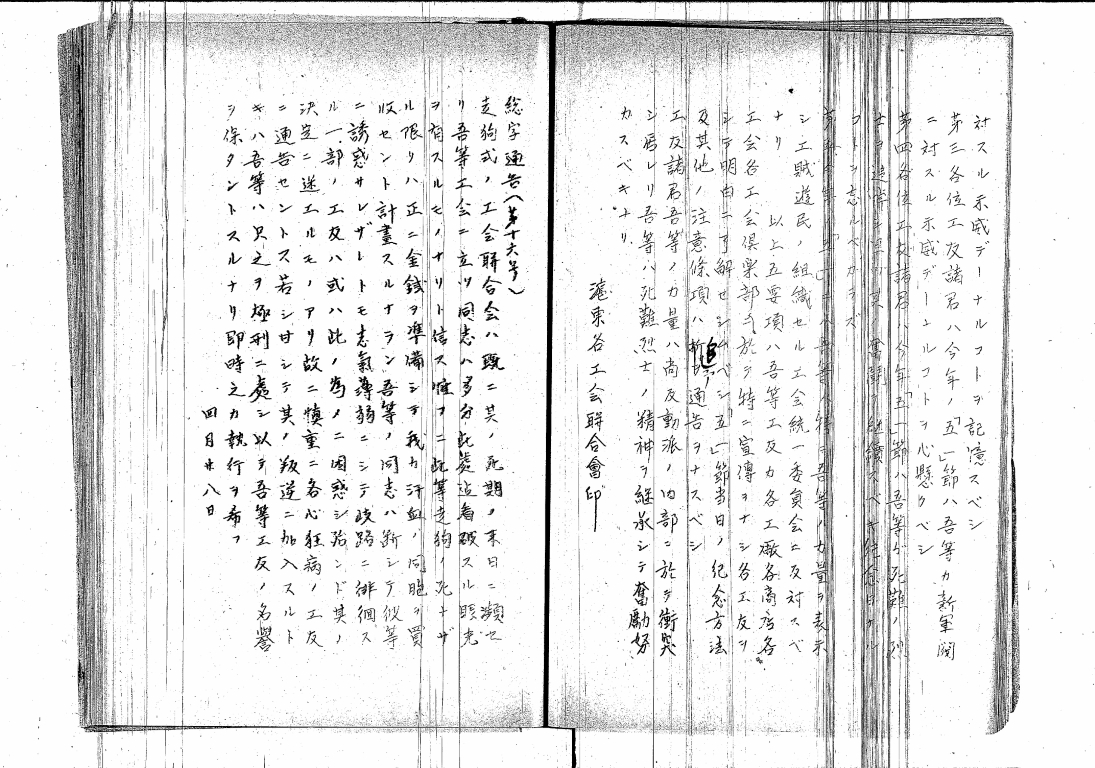 対スル示威デーナルコトヲ記憶スベシ
第三各位工友諸君ハ今年ノ「五、一」節ハ吾等カ新軍閥
ニ対スル示威デーナルコトヲ心懸クベシ
第四各位工友諸君ハ今年「五、一」節ハ吾等ガ死難ノ烈
士ヲ追悼シ 奮闘ヲ継續スベキ紀念日ナル
コトヲ忘ルベカラズ
第五今年「五、一」ニハ吾等ハ特ニ吾等ノ力量ヲ表示
シ工賊遊民ノ組織セル工会統一委員会ニ反対スベ
ナリ 以上五要項ハ吾等工友カ各工厰各商店各
工会各工会倶楽部ニ於テ特ニ宣傳ヲナシ各工友ヲ
シテ明白ニ了解セシムベシ「五、一」節当日ノ紀念方法
及其他ノ注意條項ハ追テ通告ヲナスベシ
工友諸君吾等ノ力量ハ尚反動派ノ内部ニ於テ衝突
シ居レリ吾等ハ死難烈士ノ精神ヲ継承シテ奮励努
力スベキナリ
滬東各工会聯合會印
総字通告(第十六号)
走狗式ノ工会聯合会ハ既ニ其ノ死期ノ末日ニ瀕セ
リ吾等工会ニ立ツ同志ハ多分此處迠看破スル眼光
ヲ有スルモノナリト信ス惟フニ此等走狗ノ死セザ
ル限リハ正ニ金銭ヲ準備シテ我カ汗血ノ同胞ヲ買
収セント計畫スルナラン吾等ノ同志ハ断シテ彼等
ニ誘惑サレザレトモ志氣薄弱ニシテ歧路ニ徘徊ス
ル一部ノ工友ハ或ハ此ノ為メニ困惑シ殆ンド其ノ
決定ニ迷エルモノアリ故ニ慎重ニ各心狂病ノ工友
ニ通告セントス若シ甘シテ其ノ叛逆ニ加入スルト
キハ吾等ハ只之ヲ極刑ニ處シ以テ吾等工友ノ名譽
ヲ保タントスルナリ即時之カ執行ヲ希フ
四月廿八日